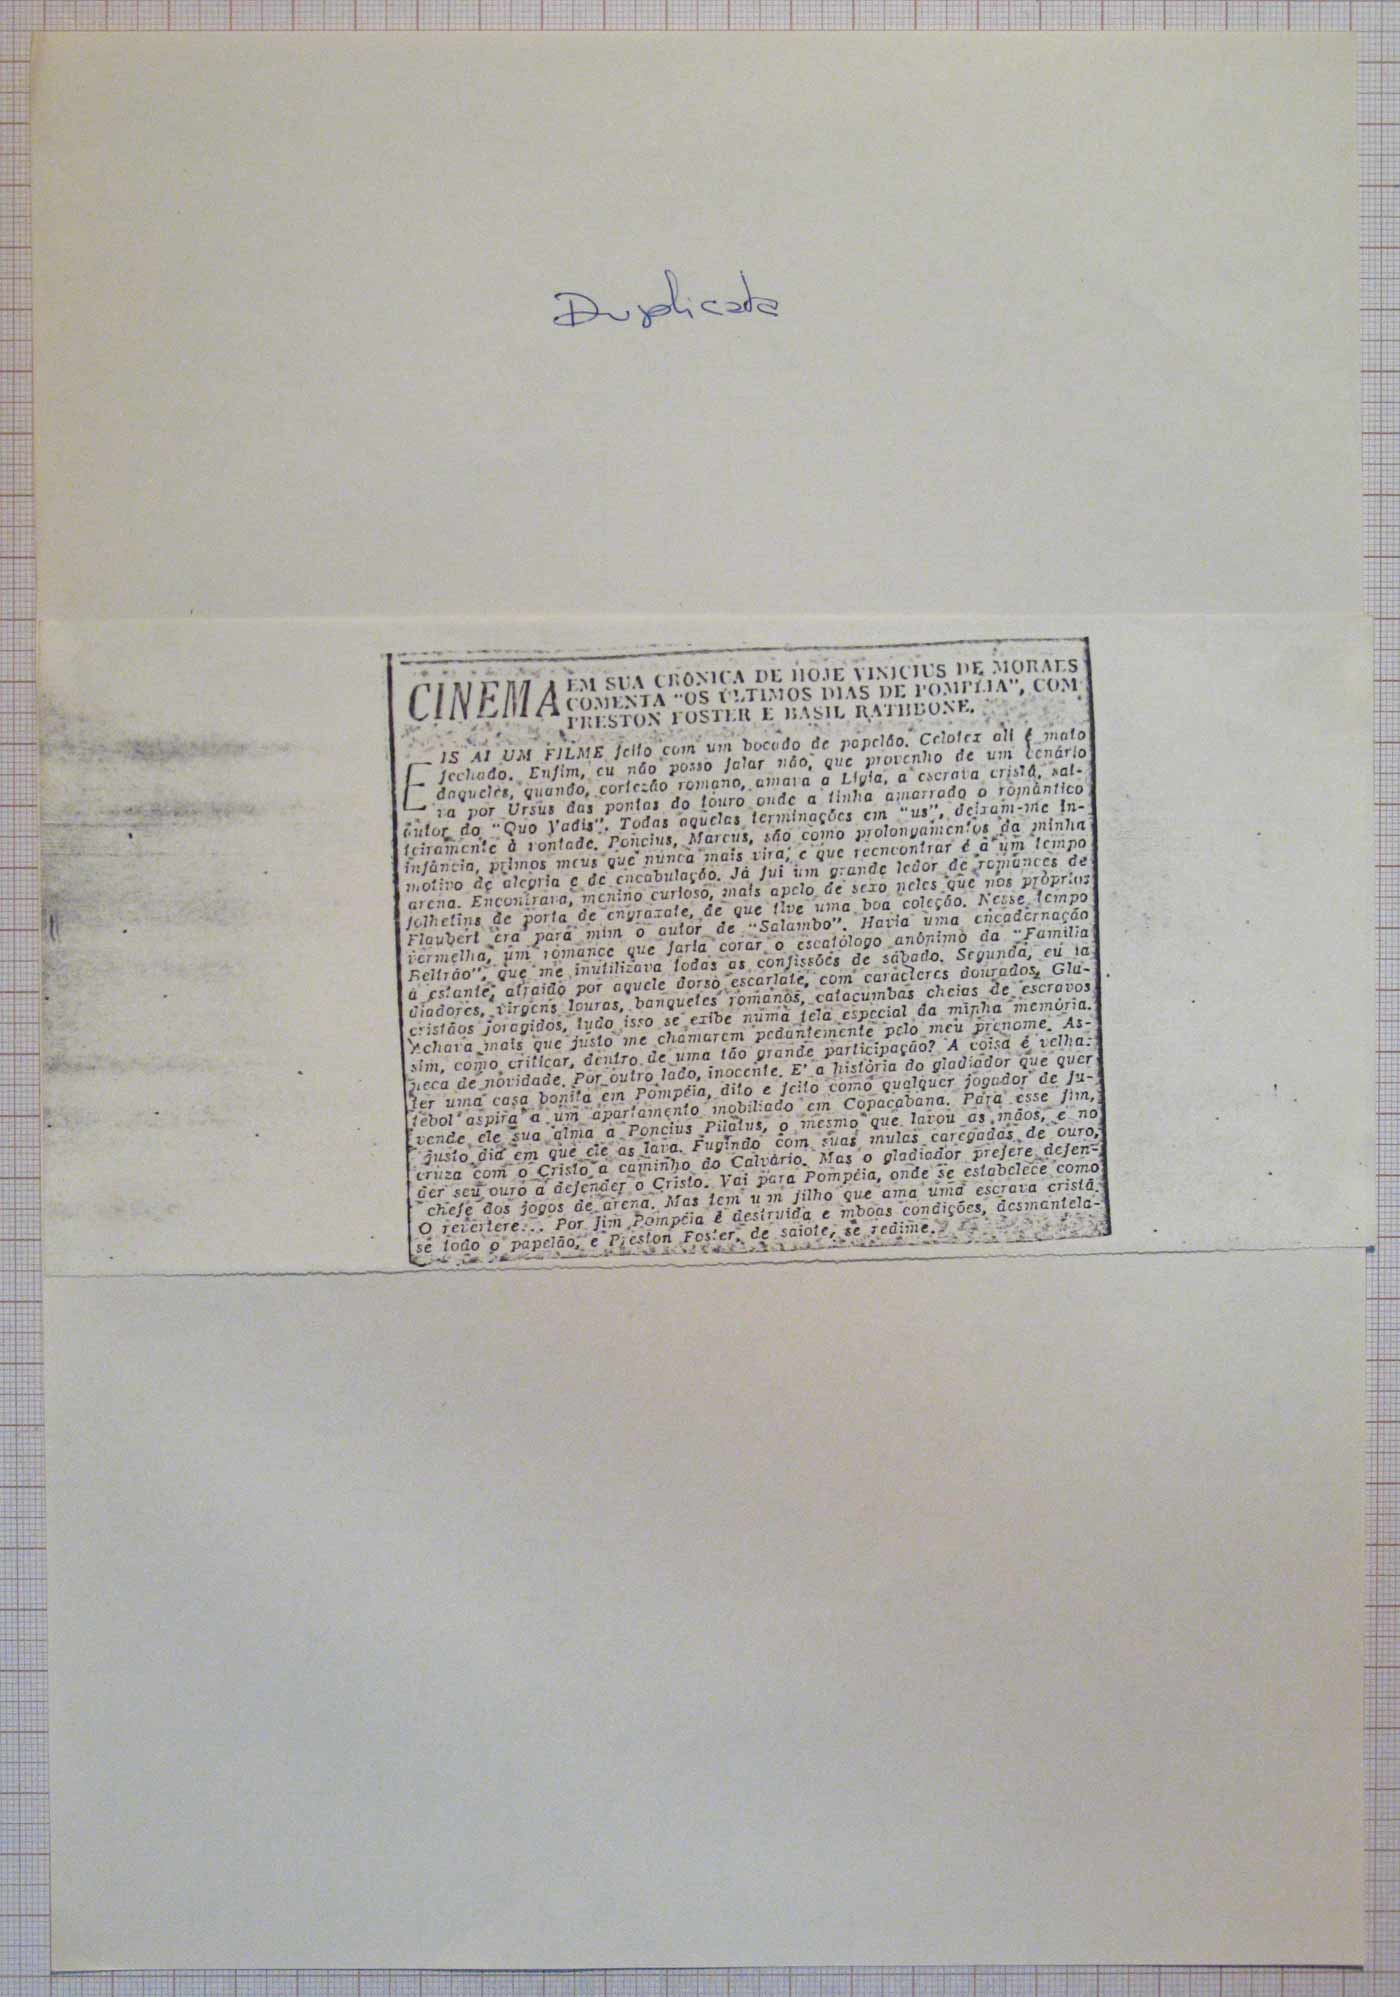 Duplicata
CINEMA
EM SUA CRÔNICA DE HOJE VINICIUS DE MORAES
COMENTA "OS ÚLTIMOS DIAS DE POMPÉIA", COM
PRESTON FOSTER E BASIL RATHBONE.
EIS AI UM FILME feito com um bocado de papelão. Celotex ali é mato
fechado. Enfim, eu não posso falar não, que provenho de um cenário
daqueles, quando, cortezão romano, amava a Ligia, a escrava cristã, sal-
va por Ursus das pontas do touro onde a tinha amarrado o romântico
autor do "Quo Vadis". Todas aquelas terminações em "us", deixam-me in-
teiramente à vontade. Poncius, Marcus, são como prolongamentos da minha
infância, primos meus que nunca mais vira, e que reencontrar é a um tempo
motivo de alegria e de encabulação. Já fui um grande ledor de romances de
arena. Encontrava, menino curioso, mais apelo de sexo neles que nos próprios
folhetins de porta de engraxate, de que tive uma boa coleção. Nesse tempo
Flaubert era para mim o autor de "Salambo". Havia uma encadernação
vermelha, um romance que faria corar o escatólogo anônimo da "Familia
Beltrão", que me inutilizava todas as confissões de sábado. Segunda, eu ia
à estante, atraido por aquele dorso escarlate, com caracteres dourados. Gla-
diadores, virgens louras, banquetes romanos, catacumbas cheias de escravos
cristãos foragidos, tudo isso se exibe numa tela especial da minha memória.
Achava mais que justo me chamarem pedantemente pelo meu prenome. As-
sim, como criticar, dentro de uma tão grande participação? A coisa é velha:
neca de novidade. Por outro lado, inocente. E' a história do gladiador que quer
ter uma casa bonita em Pompéia, dito e feito como qualquer jogador de fu-
tebol aspira a um apartamento mobiliado em Copacabana. Para esse fim,
vende ele sua alma a Poncius Pilatus, o mesmo que lavou as mãos, e no
justo dia em que ele as lava. Fugindo com suas mulas caregadas de ouro,
cruza com o Cristo a caminho do Calvário. Mas o gladiador prefere defen-
der seu ouro a defender o Cristo. Vai para Pompéia, onde se estabelece como
chefe dos jogos de arena. Mas tem um filho que ama uma escrava cristã.
O revertere... Por fim Pompéia é destruida e mboas condições, desmantela-
se todo o papelão, e Preston Foster, de saiote, se redime.